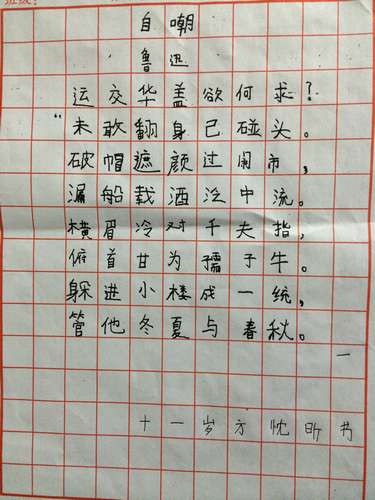 自嘲
鲁迅
运交华盖欲何求？
“未敢翻身已碰头。
破帽遮颜过闹市，
漏船载酒泛中流。
横眉冷对千夫指，
俯首甘为孺子牛。
躲进小楼成一统，
管他冬夏与春秋。
一
十一岁方忱昕书